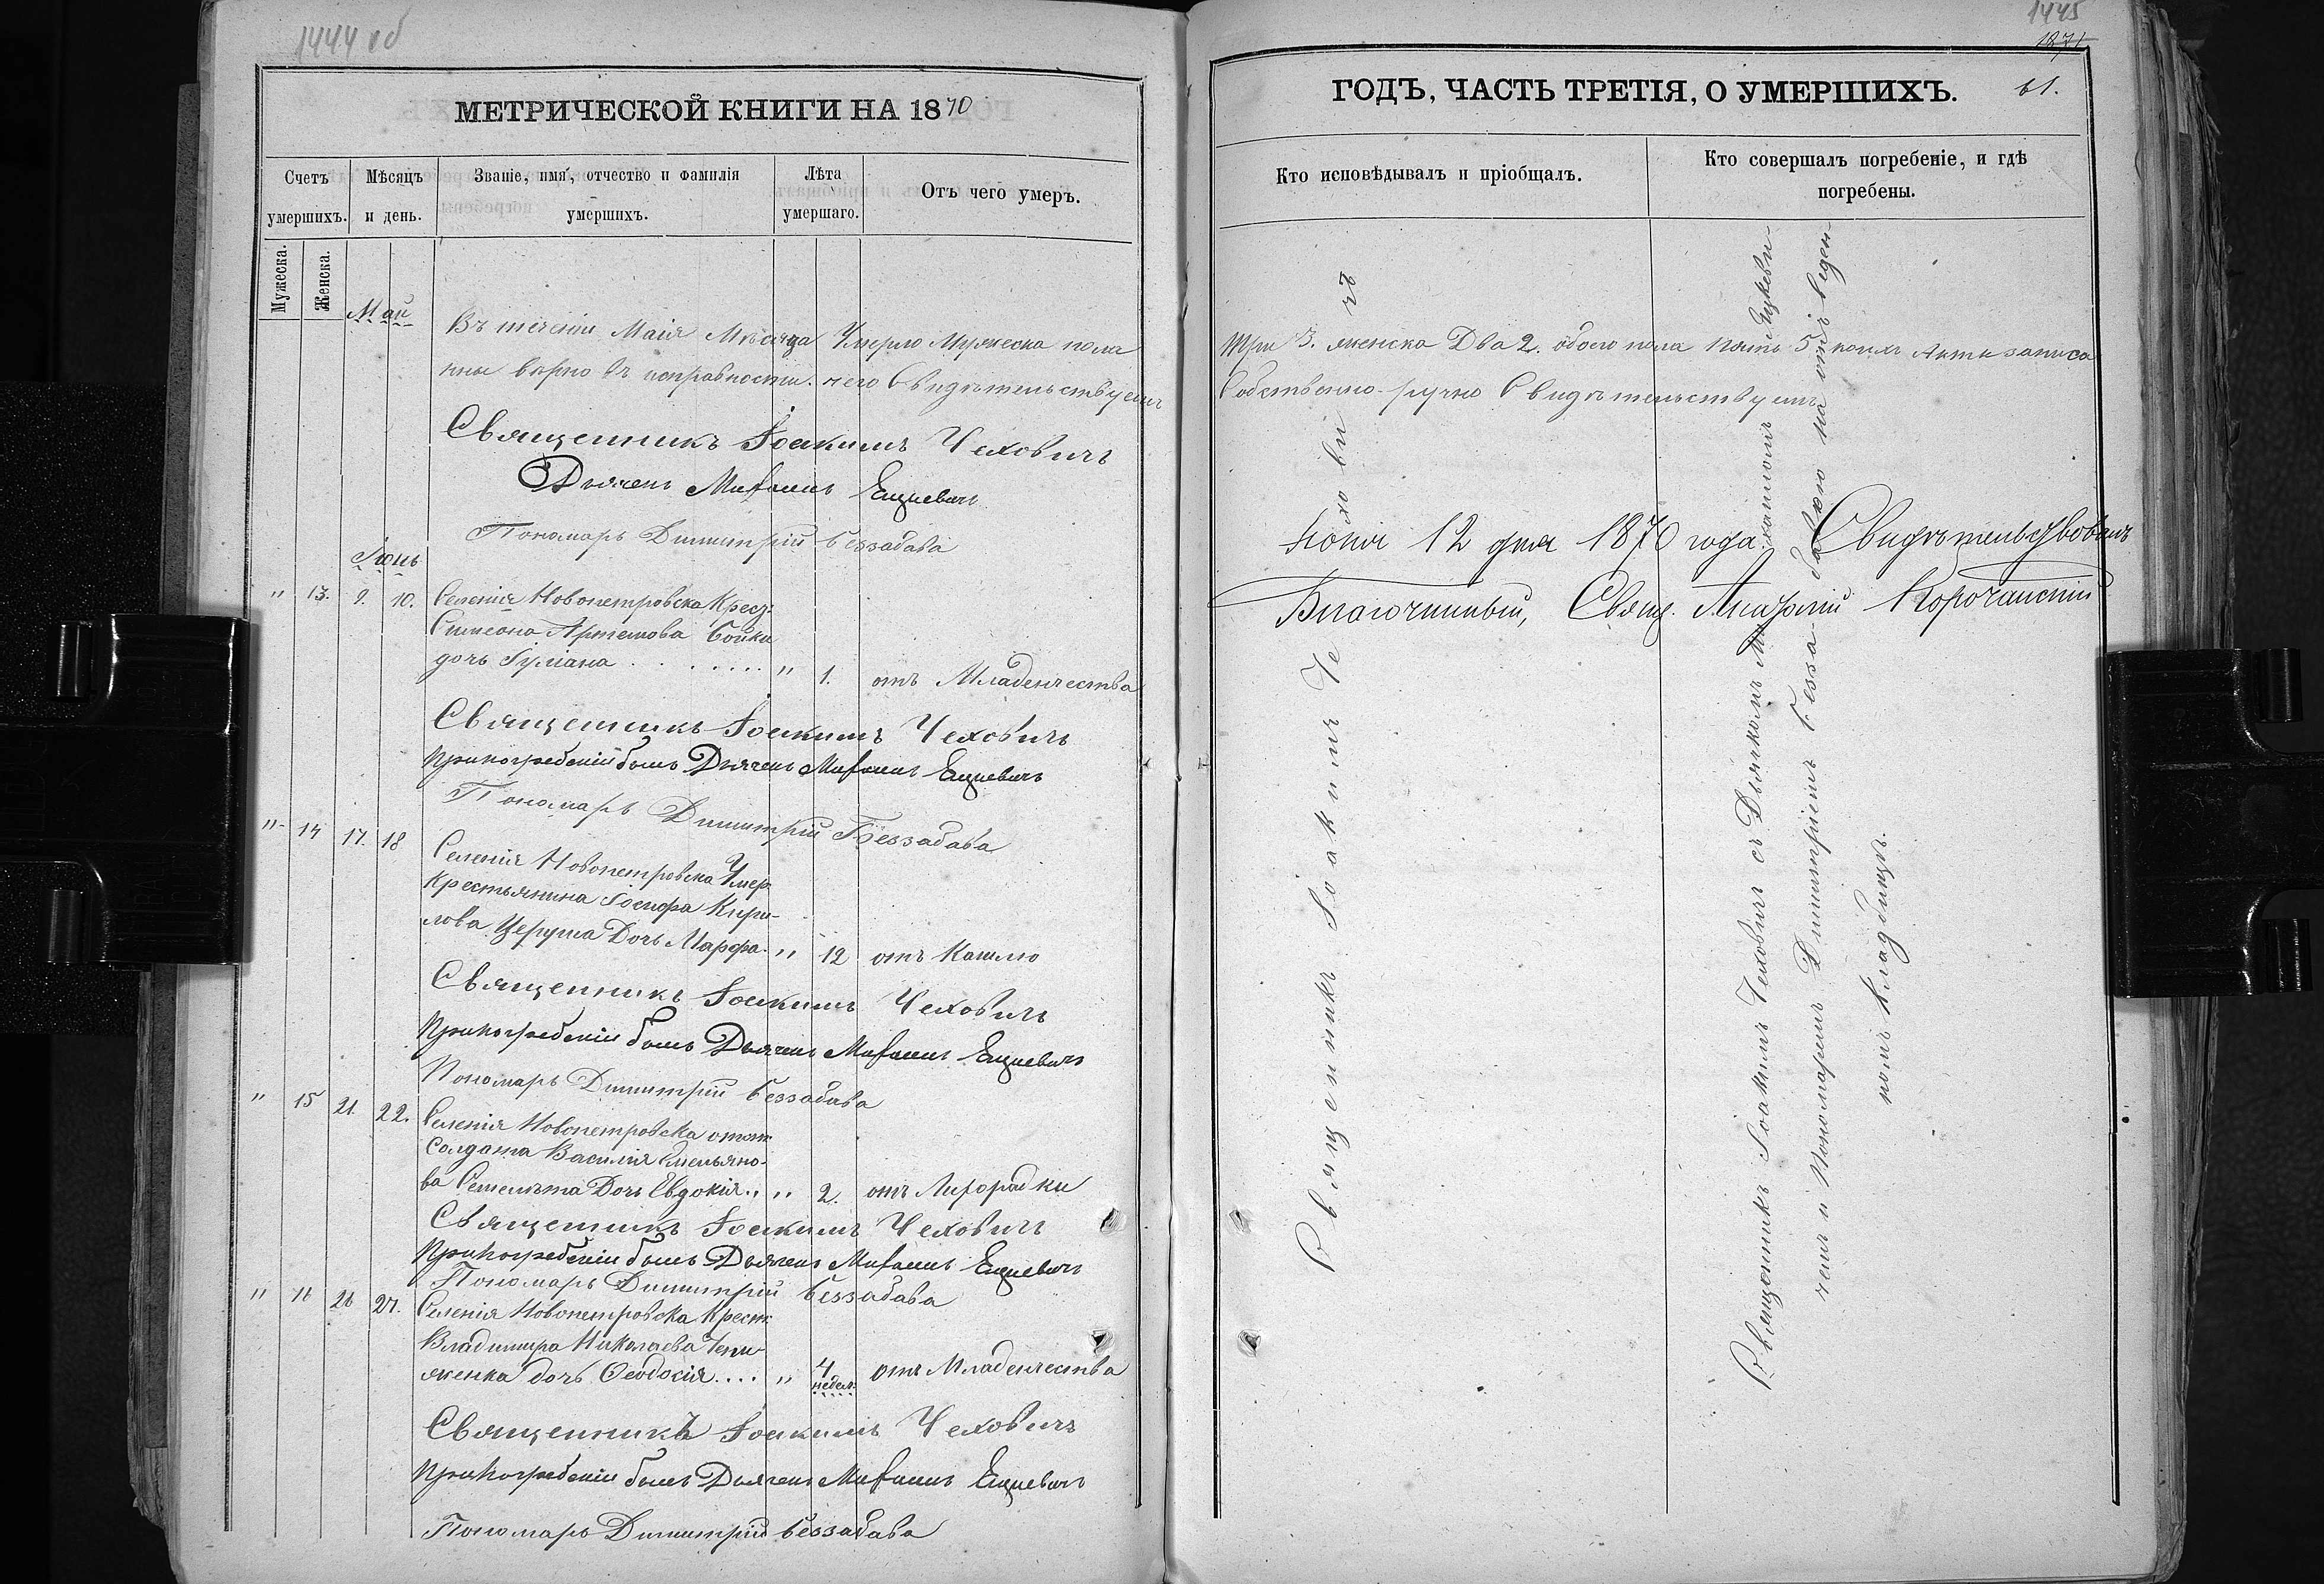 1444 об
МЕТРИЧЕСКОЙ КНИГИ НА 1870
Счетъ умершихъ.
Мѣсяцъ и день.
Званіе, имя, отчество и фамилія умершихъ.
Лѣта умершаго.
Отъ чего умеръ.
Мужеска.
Женска.
Май
Въ теченіи Маія Мѣсяца Умерло Мужеска пола
ны вѣрно въ исправности. чего Свидѣтельствуемъ
Священникъ Іоакимъ Чеховичъ
Дьячекъ Михаилъ Ецкевичъ
Пономарь Димитрій Беззабава
Іюнь
" 13. 9. 10. Селенія Новопетровска Крест.
Симеона Артемова Бойки
дочь Іуліана . . . . . . . . " 1. отъ Младенчества
Священникъ Іоакимъ Чеховичъ
При погребеніи былъ Дьячекъ Михаилъ Ецкевичъ
Пономарь Димитрій Беззабава
" 14 17. 18 Селенія Новопетровска Умер.
Крестьянина Іосифа Кири-
лова Церуша Дочь Марфа. " 12 отъ Кашлю
Священникъ Іоакимъ Чеховичъ
При погребеніи былъ Дьячекъ Михаилъ Ецкевичъ
Пономарь Димитрій Беззабава
" 15 21. 22. Селенія Новопетровска отст.
Солдата Василія Емельяно-
ва Дочь Евдокія.. " 2. отъ Лихорадки
Священникъ Іоакимъ Чеховичъ
При погребеніи былъ Дьячекъ Михаилъ Ецкевичъ
Пономарь Димитрій Беззабава
" 16 26 27. Селенія Новопетровска Крест.
Владимира Николаева Чепи-
женка дочь Ѳеодосія.... " 4 недел: отъ Младенчества
Священникъ Іоакимъ Чеховичъ
При погребеніи былъ Дьячекъ Михаилъ Ецкевичъ
Пономарь Димитрій Беззабава
1445
1871
61.
ГОДЪ, ЧАСТЬ ТРЕТІЯ, О УМЕРШИХЪ.
Кто исповѣдывалъ и пріобщалъ.
Кто совершалъ погребеніе, и гдѣ погребены.
три 3. женска Два 2. обоего пола пять 5 коихъ Акты записа
Собственно-ручно Свидѣтельствуемъ
Іюня 12 дня 1870 года. Свидѣтельствовалъ
Благочинный, Свящ. Корочанскій
Священникъ Іоакимъ Чеховичъ
Священникъ Іоакимъ Чеховичъ съ Дьячкомъ Михаиломъ Ецкеви-
чемъ и Пономаремъ Димитріемъ Беззабавою на отведен-
номъ Кладбищѣ.